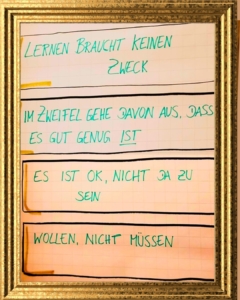 LERNEN BRAUCHT KEINEN
ZWECK
IM ZWEIFEL GEHE DAVON AUS, DASS
ES GUT GENUG IST
ES IST OK, NICHT DA ZU
SEIN
WOLLEN, NICHT MÜSSEN